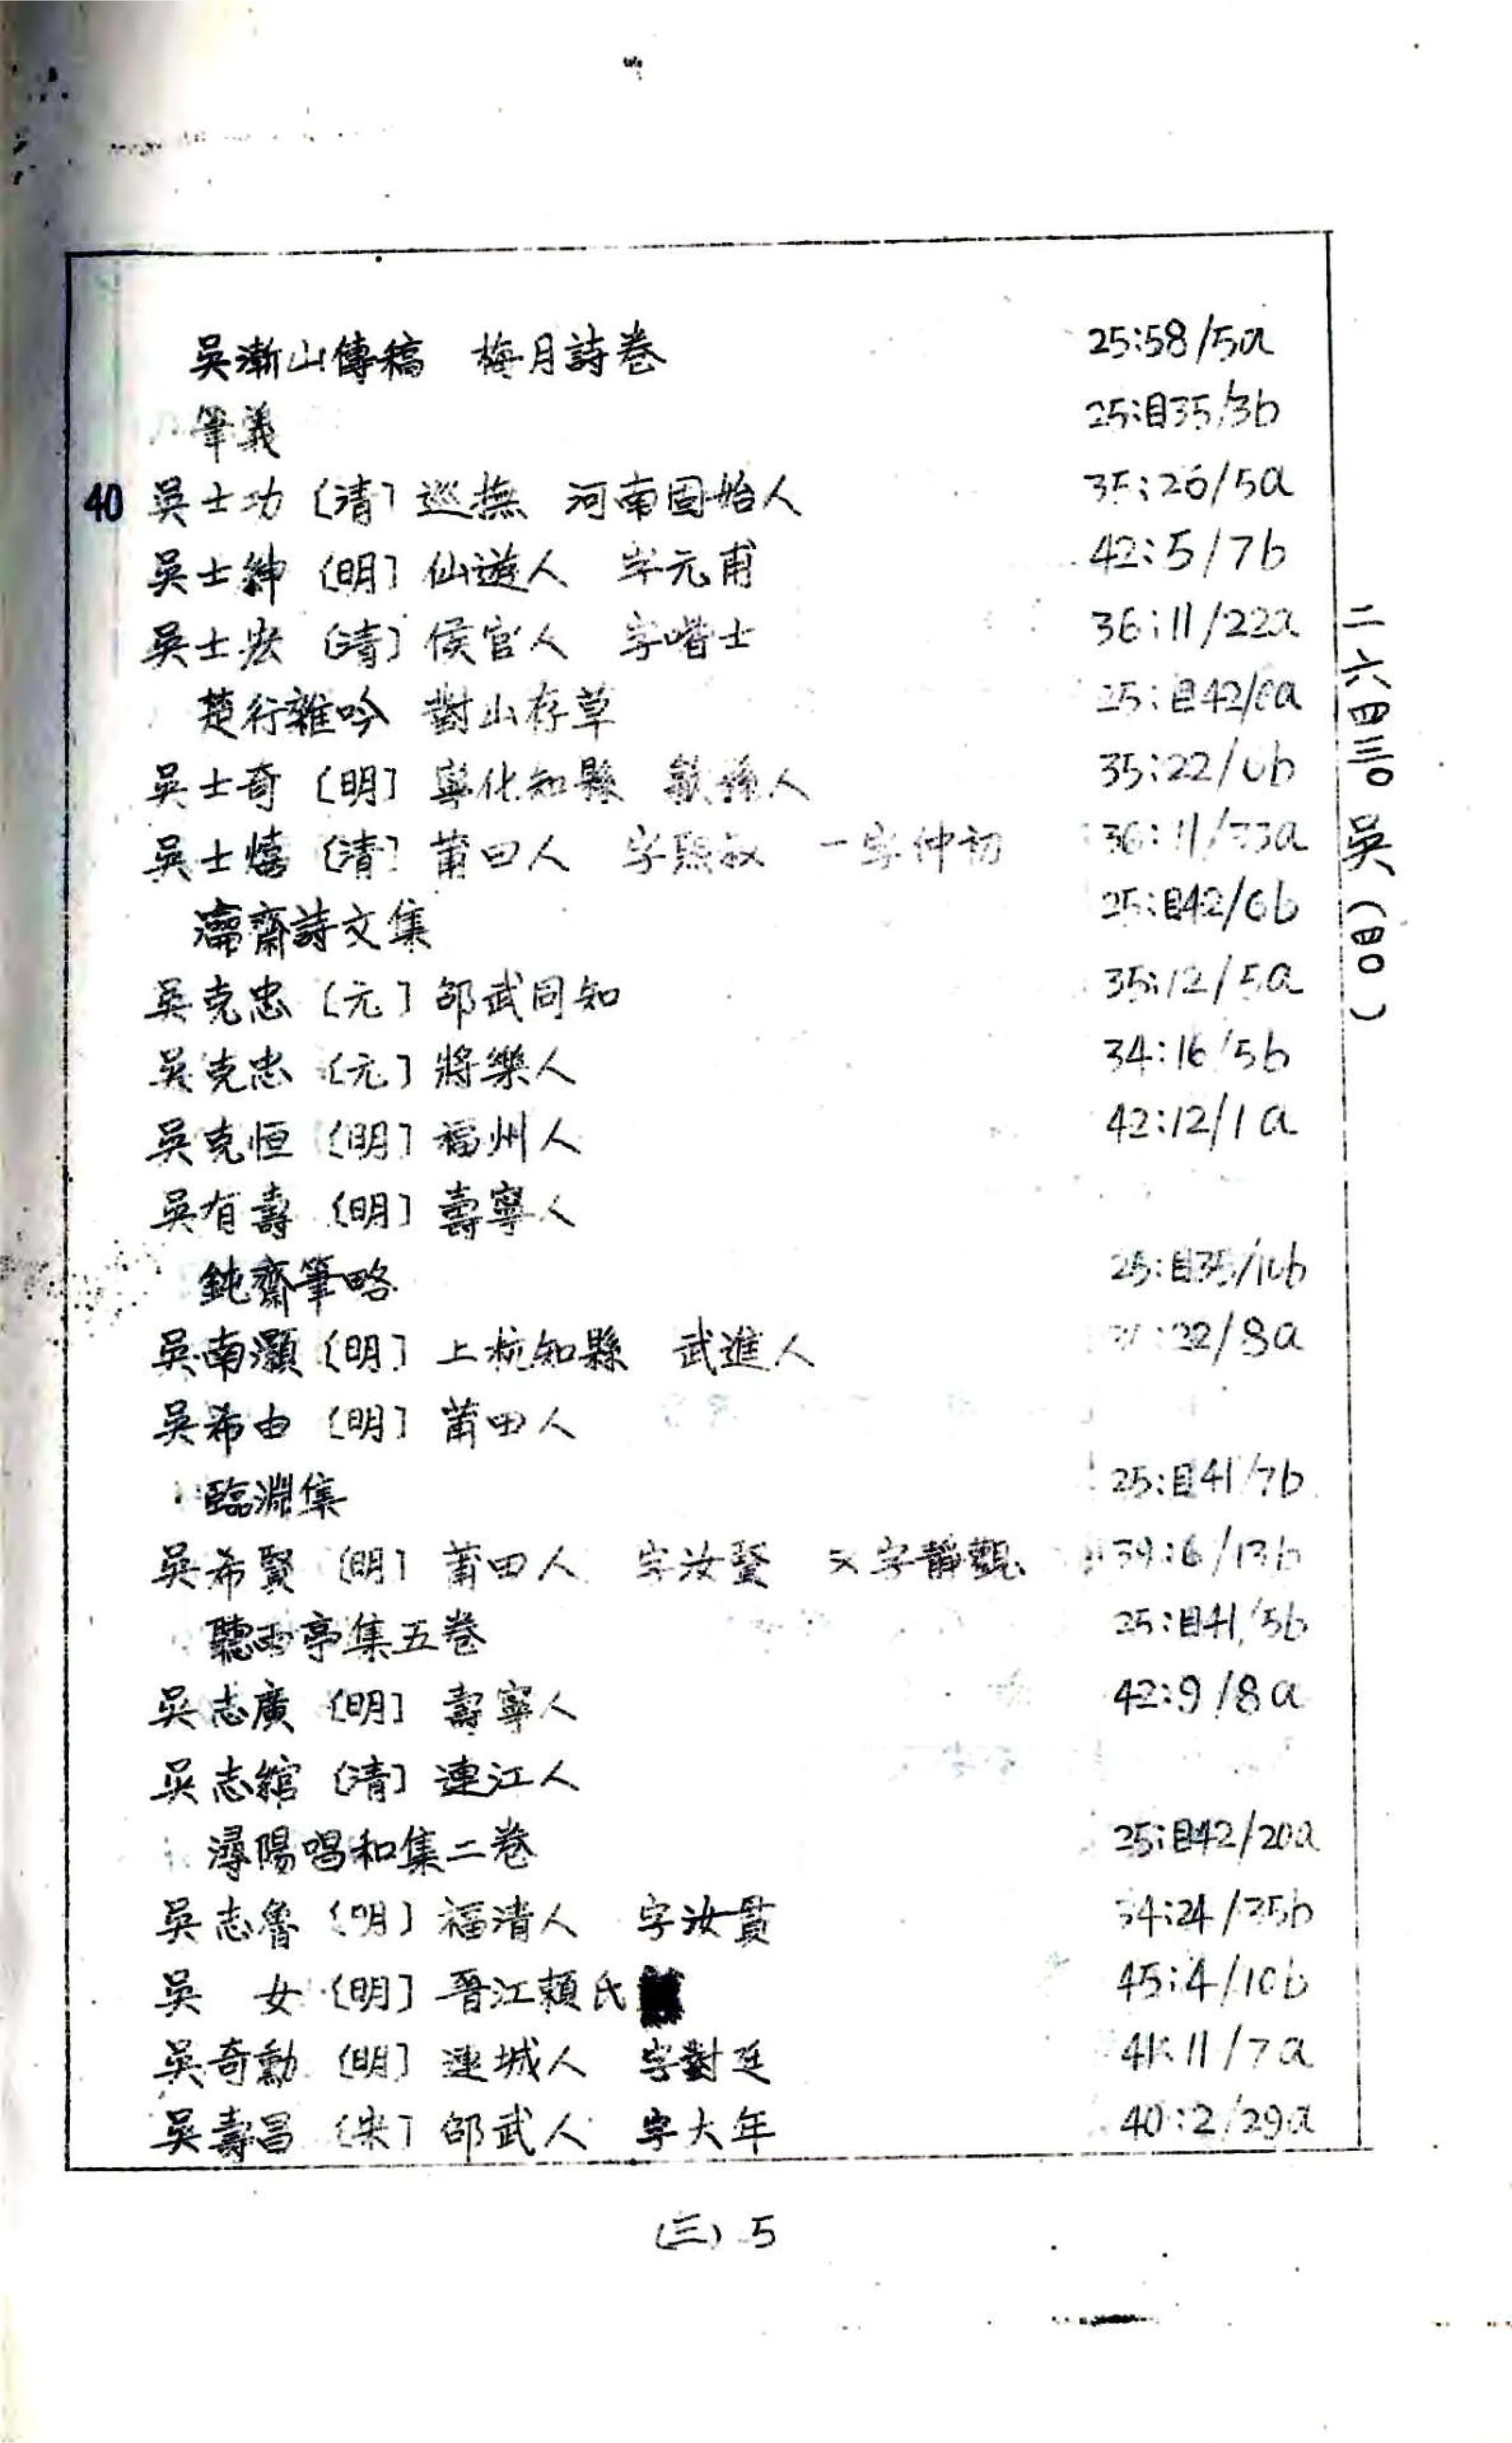 吳漸山傳稿 梅月詩卷 25:58/5a
筆義 25:目35/3b
40 吳士功〔清〕巡撫 河南固始人 35:26/5a
吳士紳〔明〕仙遊人 字元甫 42:5/7b
吳士宏〔清〕侯官人 字喈士 36:11/22a
楚行雜吟 對山存草 25:目42/
吳士奇〔明〕寧化知縣 歙縣人 35:22/6b
吳士熺〔清〕莆田人 字熙叔 一字仲初 36:11/33a
齋詩文集 25:目42/6b
吳克忠〔元〕邵武同知 35:12/5a
吳克忠〔元〕將樂人 34:16/5b
吳克恒〔明〕福州人 42:12/1a
吳有壽〔明〕壽寧人
鈍齋筆略 25:目35/10b
吳南灝〔明〕上杭知縣 武進人 :22/8a
吳希由〔明〕莆田人
臨淵集 25:目41/7b
吳希賢〔明〕莆田人 字汝賢 又字靜觀 39:6/13b
聽雨亭集五卷 25:目41/5b
吳志廣〔明〕壽寧人 42:9/8a
吳志綰〔清〕連江人
潯陽唱和集二卷 25:目42/20a
吳志魯〔明〕福清人 字汝貫 34:24/35b
吳 女〔明〕晉江賴氏 45:4/10b
吳奇勳〔明〕連城人 字對廷 41:11/7a
吳壽昌〔宋〕邵武人 字大年 40:2/29a
二六四三〇吳(四〇)
(三)5